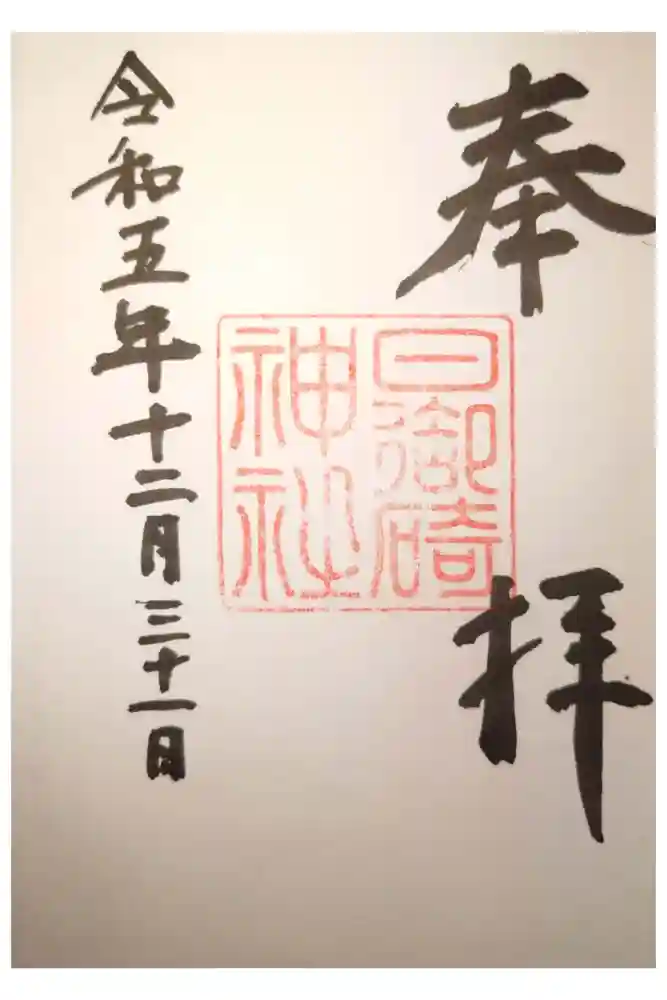 奉拝
日御碕
神社
令和五年十二月三十一日